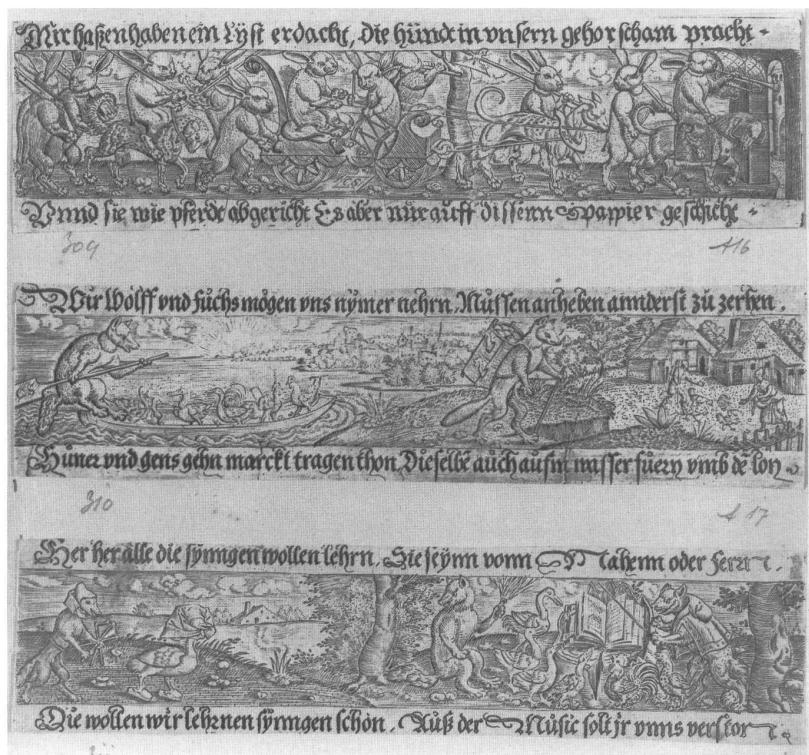 Mir haßen haben ein Lyst erdacht, die hündt in vnsern gehorscham pracht
Vnnd sie wie pferdt abgericht Es aber nur auff dissenn Pappier geschicht
309 A16
Wir Wolff vnd fuchs mögen vns nymer nehrn, Müssen anheben annderst zu zerhen.
Hüner vnd gens gehn marckt tragen thon, Dieselbē auch aufm wasser fuern vmb dē lon
310 A17
Her her alle die syngen wollen lehrn, Sie seynn vonn Nahenn oder Ferr
Die wollen wir lehrnen syngen schon. Auß der Music solt jr vnns verston